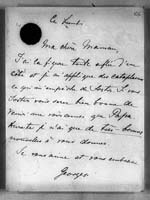 Ce Lundi
Ma chère Maman,
J'ai la figure toute enflée d'un
côté et je m'applique des cataplasmes
ce qui m'empêche de sortir. Si vous
sortez vous seriez bien bonne de
venir me voir parce que Papa
. je n'ai que de bien bonnes
nouvelles à vous donner.
Je vous aime et vous embrasse
Georges